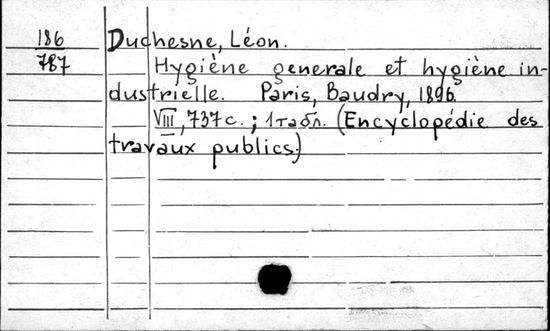 186 Duchesne, Léon.
787 Hygiène generale et hygiène in-
dustrielle. Paris, Baudry, 1896.
VIII, 737 с. ; 1 табл. (Encyclopédie des
travaux publics)